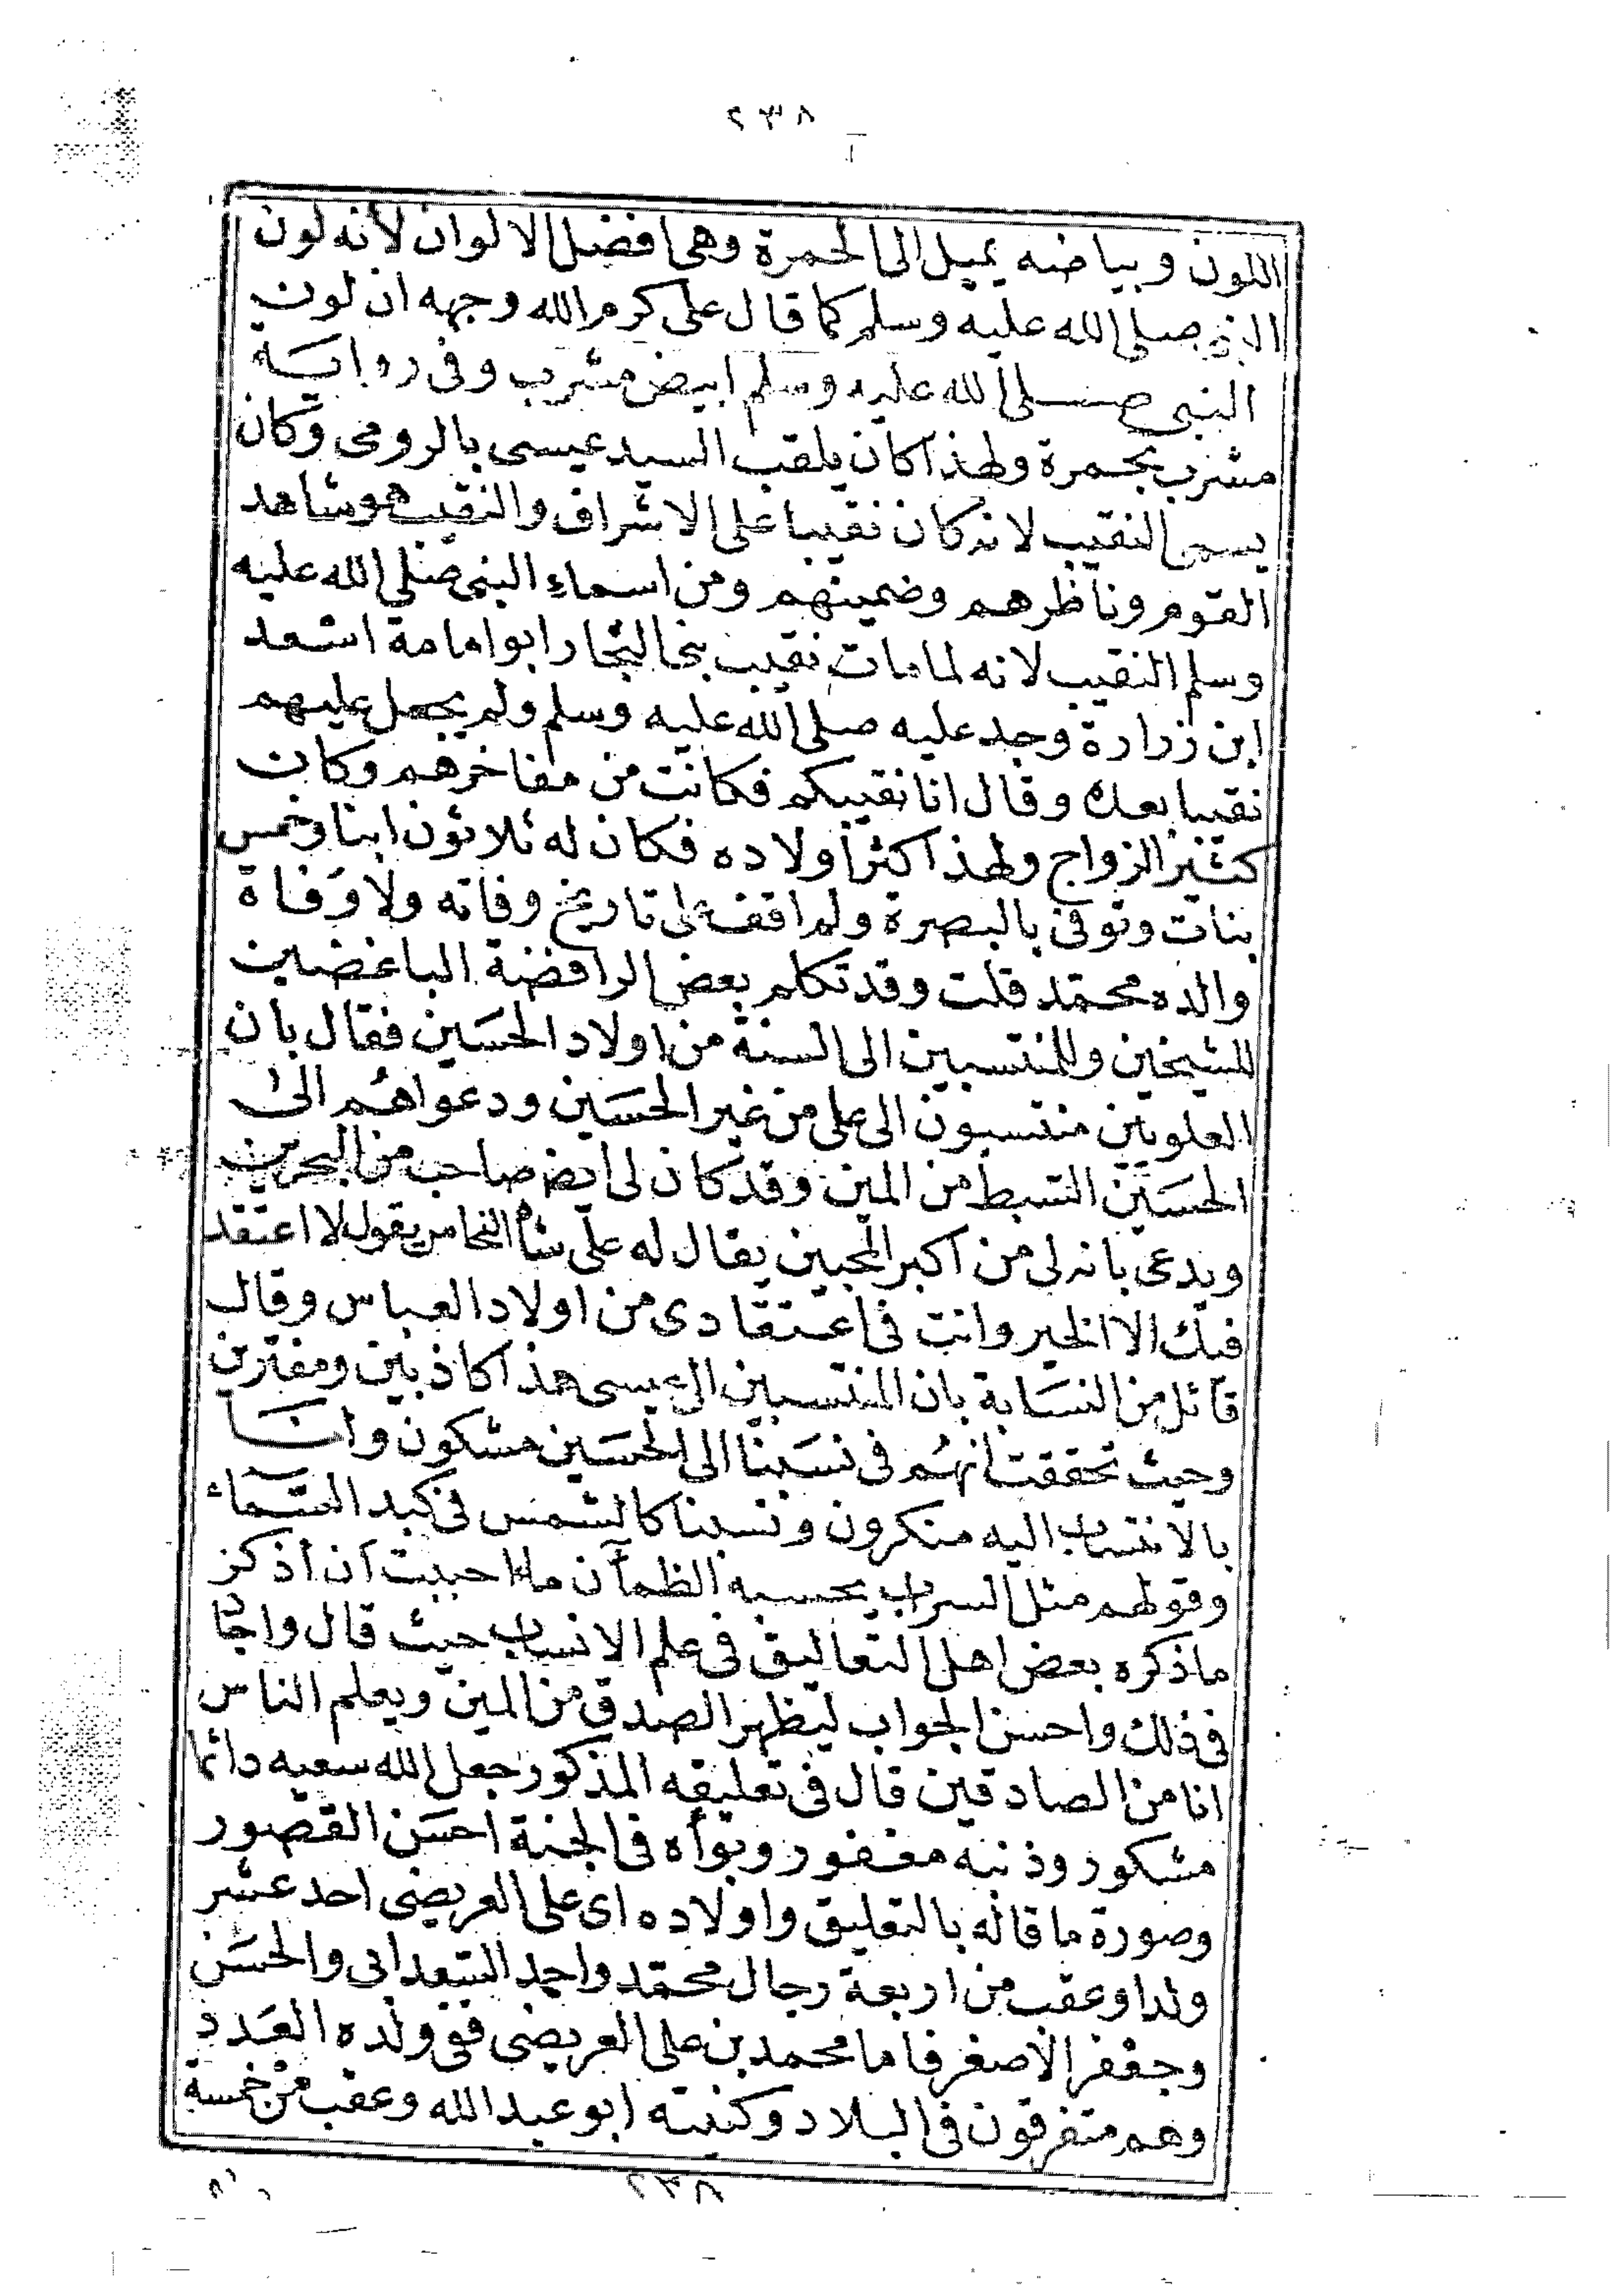 ٢٣٨
اللون وبياضه يميل الى الحمرة وهى افضل الالوان لأنه لون
النبى صلى الله عليه وسلم كما قال على كرم الله وجهه ان لون
النبى صلى الله عليه وسلم ابيض مشرب وفى رواية
مشرب بحمرة ولهذا كان يلقب السيد عيسى بالرومى وكان
يسمى النقيب لانه كان نقيبا على الاشراف والنقيب هو شاهد
القوم وناظرهم وضمينهم ومن اسماء النبى صلى الله عليه
وسلم النقيب لانه لما مات نقيب بنى النجار ابو امامة اسعد
ابن زرارة وجد عليه صلى الله عليه وسلم ولم يجعل عليهم
نقيبا بعده وقال انا نقيبكم فكانت من مفاخرهم وكان
كثير الزواج ولهذا كثر أولاده فكان له ثلاثون ابنا وخمس
بنات وتوفى بالبصرة ولم اقف على تاريخ وفاته ولا وفاة
والده محمد قلت وقد تكلم بعض الرافضة الباغضين
للشيخين وللمنتسبين الى السنة من اولاد الحسين فقال بان
العلويين منتسبون الى على من غير الحسين ودعواهم الى
الحسين السبط من المين وقد كان لى ايضا صاحب من البحرين
ويدعى بانه لى من اكبر المحبين يقال له على النحاس يقول لا اعتقد
فيك الا الخير وانت فى اعتقادى من اولاد العباس وقال
قائل من النسابة بان المنتسبين الى عيسى هذا كاذبين ومفترين
وحيث تحققت انهم فى نسبنا الى الحسين مشكون وانا
بالانتساب اليه منكرون ونسبنا كالشمس فى كبد السماء
وقولهم مثل السراب يحسبه الظمآن ماء احببت أن أذكر
ماذكره بعض اهل التعاليق فى علم الانساب حيث قال واجاد
فى ذلك واحسن الجواب ليظهر الصدق من المين ويعلم الناس
انا من الصادقين قال فى تعليقه المذكور جعل الله سعيه دائما
مشكور وذنبه مغفور وبوأه فى الجنة احسن القصور
وصورة ما قاله بالتعليق واولاده اى على العريضى احد عشر
ولدا وعقب من اربعة رجال محمد واحمد الشعرانى والحسن
وجعفر الأصغر فاما محمد بن على العريضى ففى ولده العدد
وهم متفرقون فى البلاد وكنيته ابو عبد الله وعقب من خمسة
٢٣٨